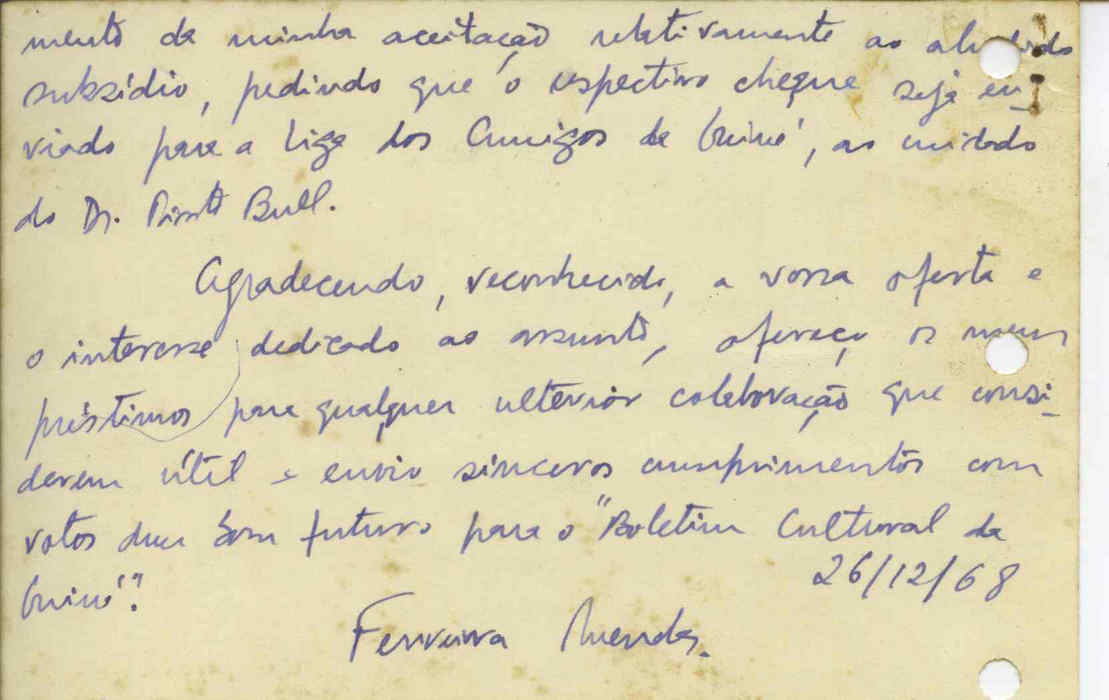 mento da minha aceitação relativamente ao aludido
subsídio, pedindo que o respectivo cheque seja en-
viado para a Liga dos Amigos da Guiné, ao cuidado
do Dr. Pinto Bull.
Agradecendo, reconhecido, a vossa oferta e
o interesse dedicado ao assunto, ofereço os meus
préstimos para qualquer ulterior colaboração que consi-
derem útil e envio sinceros cumprimentos com
votos dum bom futuro para o "Boletim Cultural da
Guiné".
26/12/68
Ferreira Mendes.